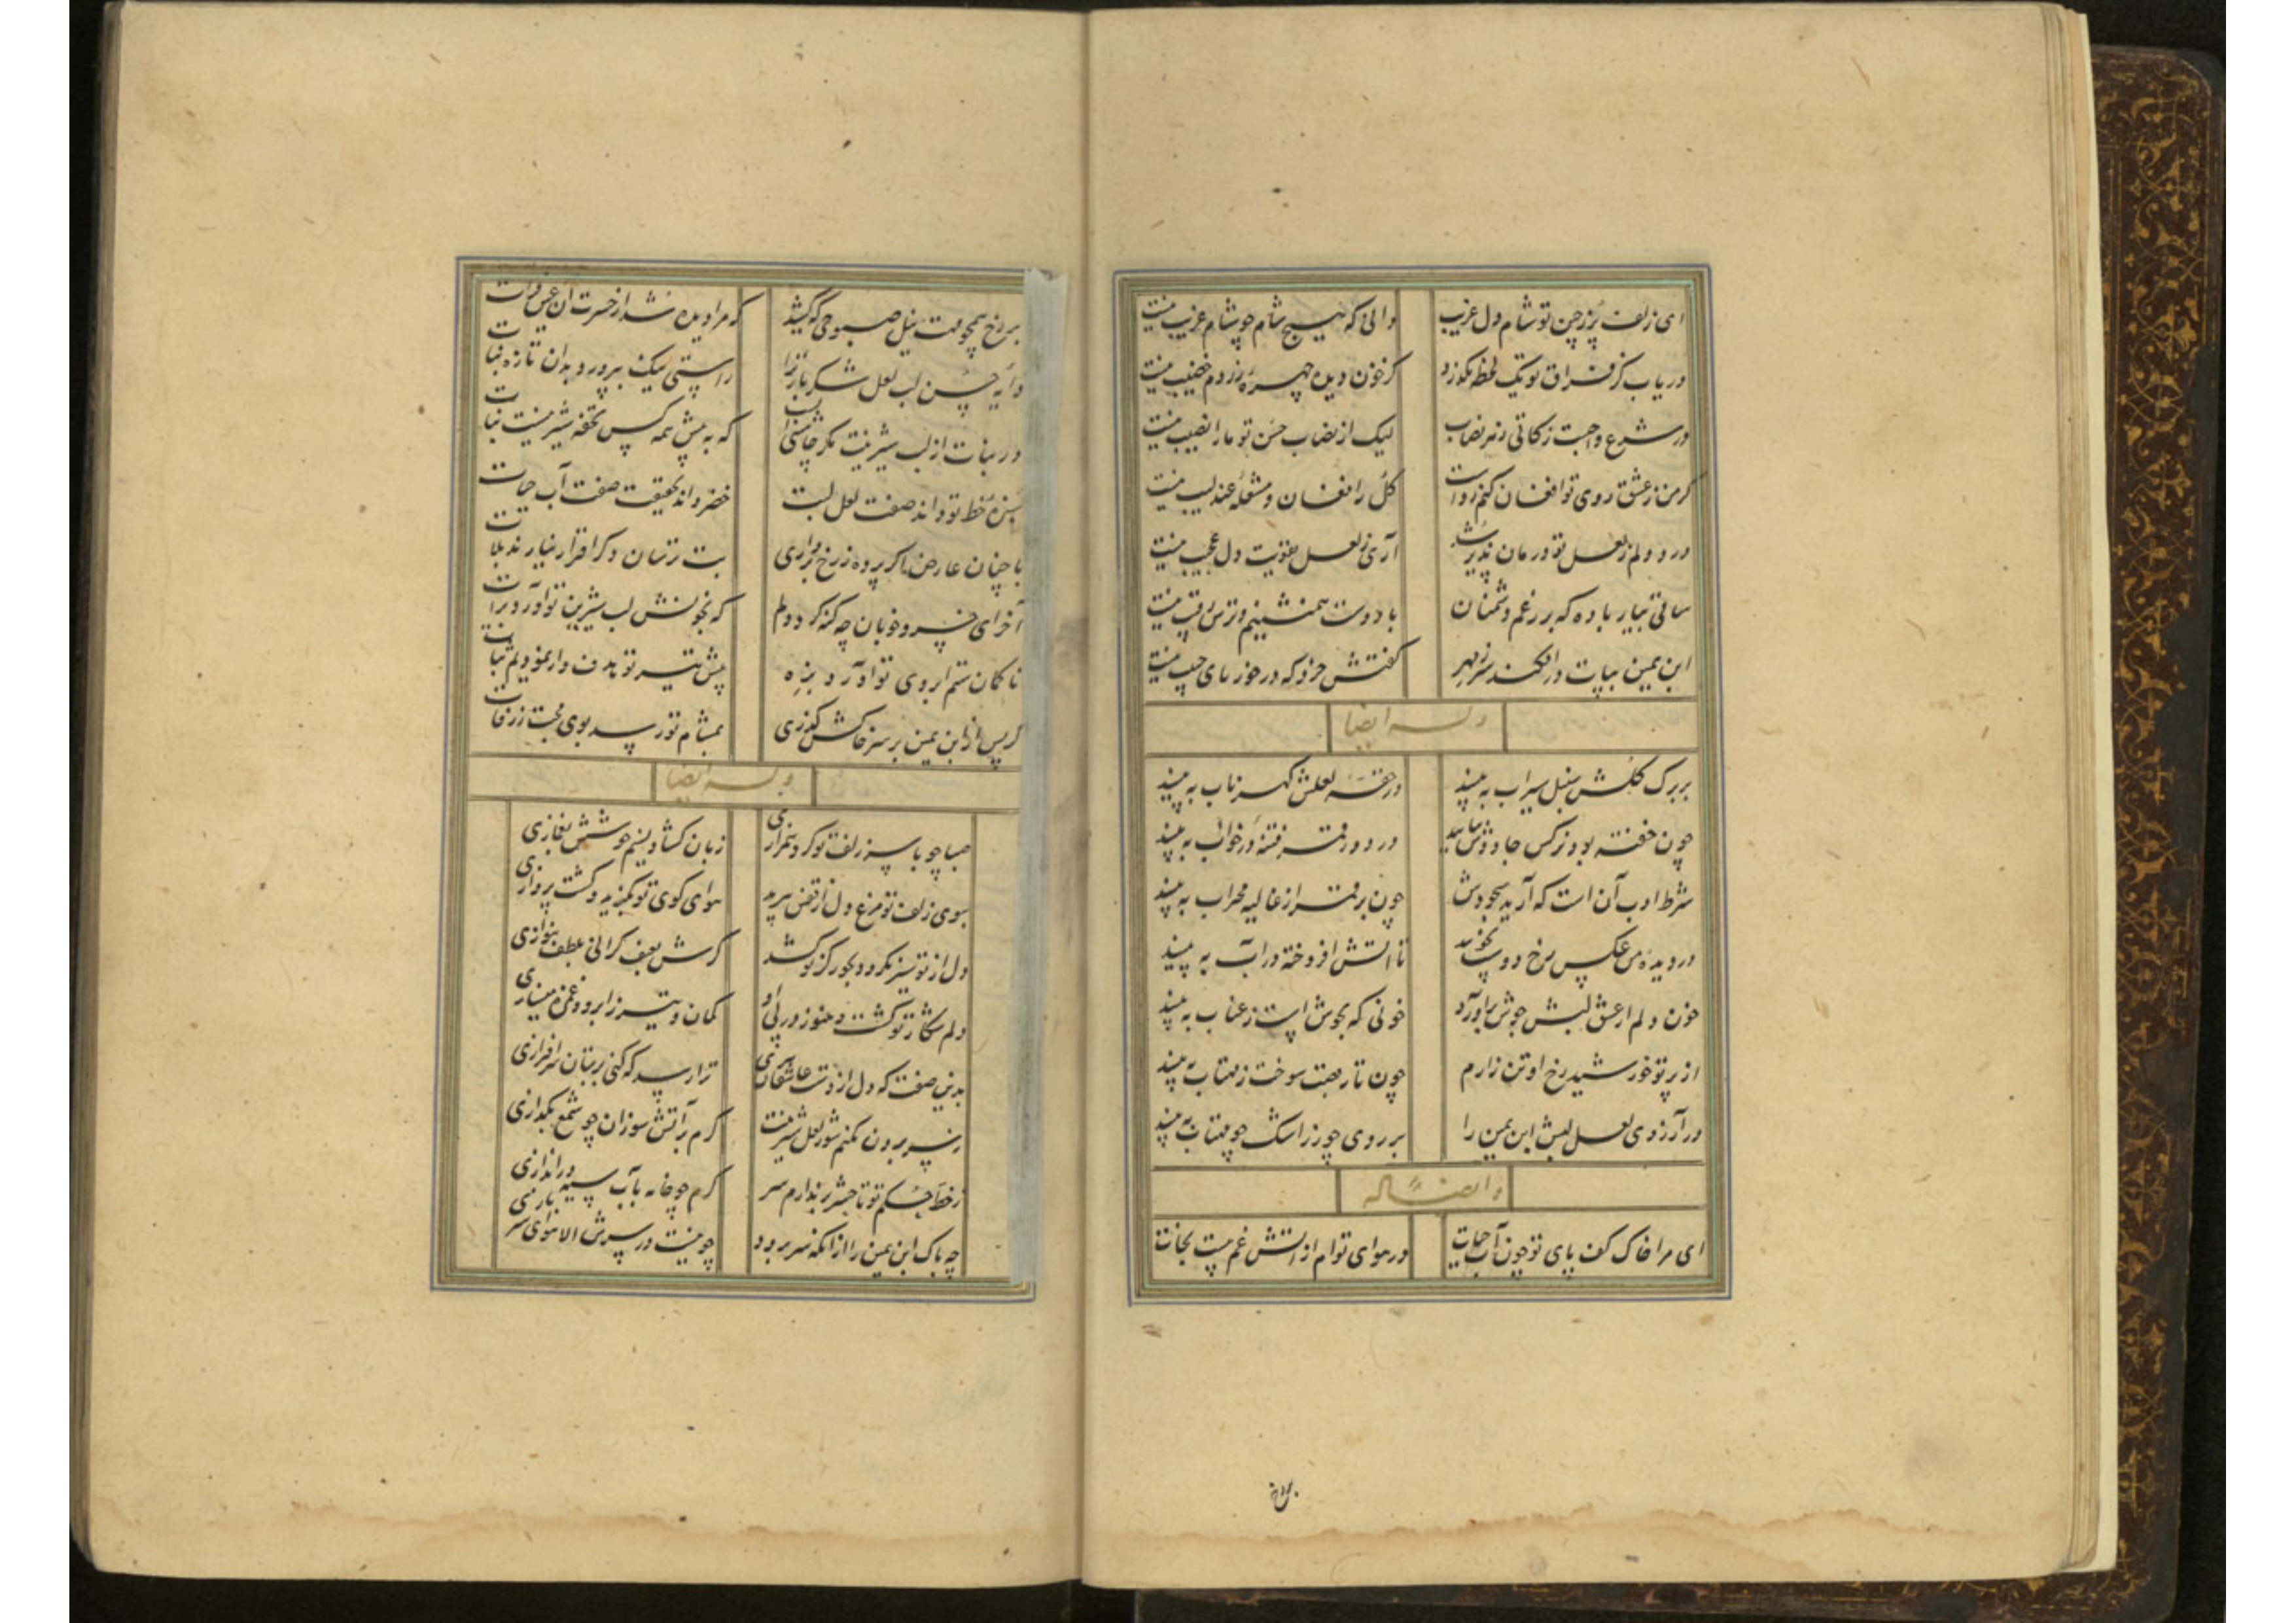 ای زلف پر ز چین تو شام دل غریب والی که هیچ شام چو شام غریب نیست
دریاب کز فراق تو یک لحظه نگذرد کز خون دیده چهره زردم خضیب نیست
در شرع واجبست زکاتی ز هر نصاب لیک از نصاب حسن تو ما را نصیب نیست
گر من ز عشق روی تو افغان کنم رواست گل را فغان و مشغله عندلیب نیست
درد دلم ز لعل تو درمان پذیر شد آری ز لعل تقویت دل عجیب نیست
ساقی بیار باده که بر رغم دشمنان با دوست همنشینم و ترس رقیب نیست
ابن یمین بپات در افکند سر ز مهر گفتش خرد که در خور پای حبیب نیست
وله ایضا
بر برگ گلش سنبل سیراب ببینید در حقه لعلش گهر ناب ببینید
چون خفته بود نرگس جادوش بیایید در دور قمر فتنه در خواب ببینید
شرط ادب آن است که آرید سجودش چون بر قمر از غالیه محراب ببینید
در دیده من عکس رخ دوست بجویید تا آتش افروخته در آب ببینید
خون دلم از عشق لبش جوش برآورد خونی که بجوش است ز عناب ببینید
از پرتو خورشید رخ او تن زارم چون تار قصب سوخت ز مهتاب ببینید
در آرزوی لعل لبش ابن یمین را بر روی چو زر اشک چو خوناب ببینید
وایضا له
ای مرا خاک کف پای تو چون آب حیات در هوای توام از آتش غم نیست نجات
بر رخ همچو مهت نیل صبوحی که کشید که مرا دیده شد از حسرت آن عین فرات
دایه حسن لب لعل شکربار ترا راستی نیک بپرورد بدان تازه نبات
در نبات از لب شیرینت مگر چاشنی است که به پیش همه کس تحفه شیرینست نبات
سبزه خط تو داند صفت لعل لبت خضر داند بحقیقت صفت آب حیات
با چنان عارض اگر پرده ز رخ برداری بت پرستان دگر اقرار نیارند بلات
آخر ای خسرو خوبان چه گنه کرد دلم که بخونش لب شیرین تو آورد برات
تا کمان ستم ابروی تو آورد بزه پیش تیر تو هدف وار نمودیم ثبات
گر پس از ابن یمین بر سر خاکش گذری بمشام تو رسد بوی محبت ز رفات
وله ایضا
صبا چو با سر زلف تو کرد همرازی زبان گشاد نسیم خوشش بغمازی
ببوی زلف تو مرغ دل از قفس بپرید هوای کوی تو بگزید و گشت پروازی
دل از تو سیر نگردد بجور گر تو کشی گرش بعنف گر الی بلطف بنوازی
دلم شکار تو گشت و هنوز در پی او کمان و تیر ز ابرو و غمزه میسازی
بدین صفت که دل از دست عاشقان ببری ترا رسد که کنی بر بتان سرافرازی
ز سر برون نکنم شور لعل شیرینت گرم بر آتش سوزان چو شمع بگدازی
ز خط حکم تو تا حشر بر ندارم سر گرم چو خامه بآب سیه در اندازی
چه باک ابن یمین را از آنکه سر برود چو نیست در سرش الا هوای سربازی